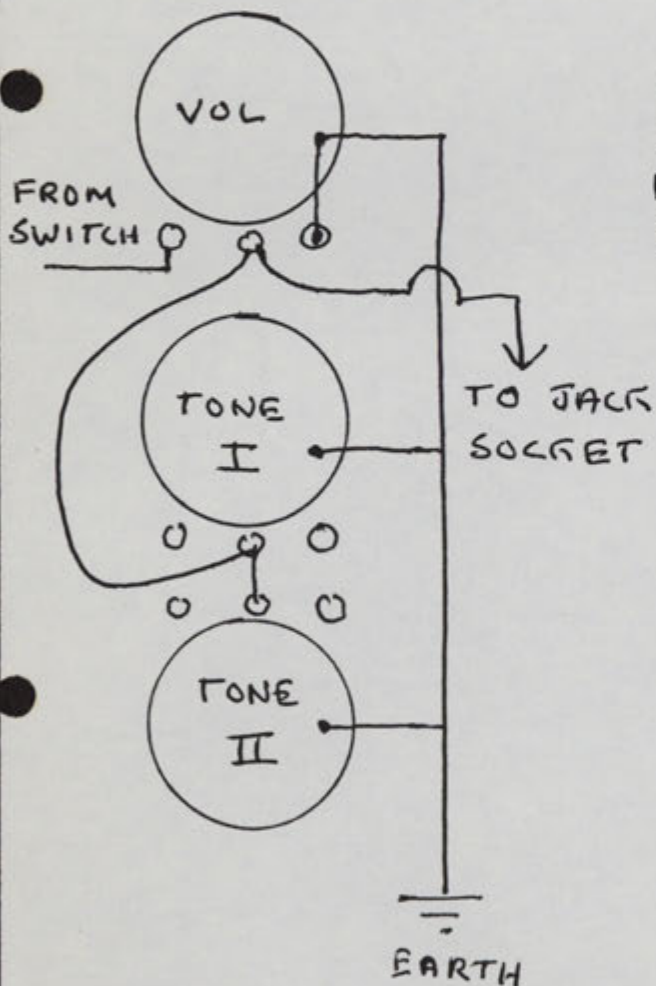 VOL
FROM
SWITCH
TONE
I
TO JACK
SOCKET
TONE
II
EARTH